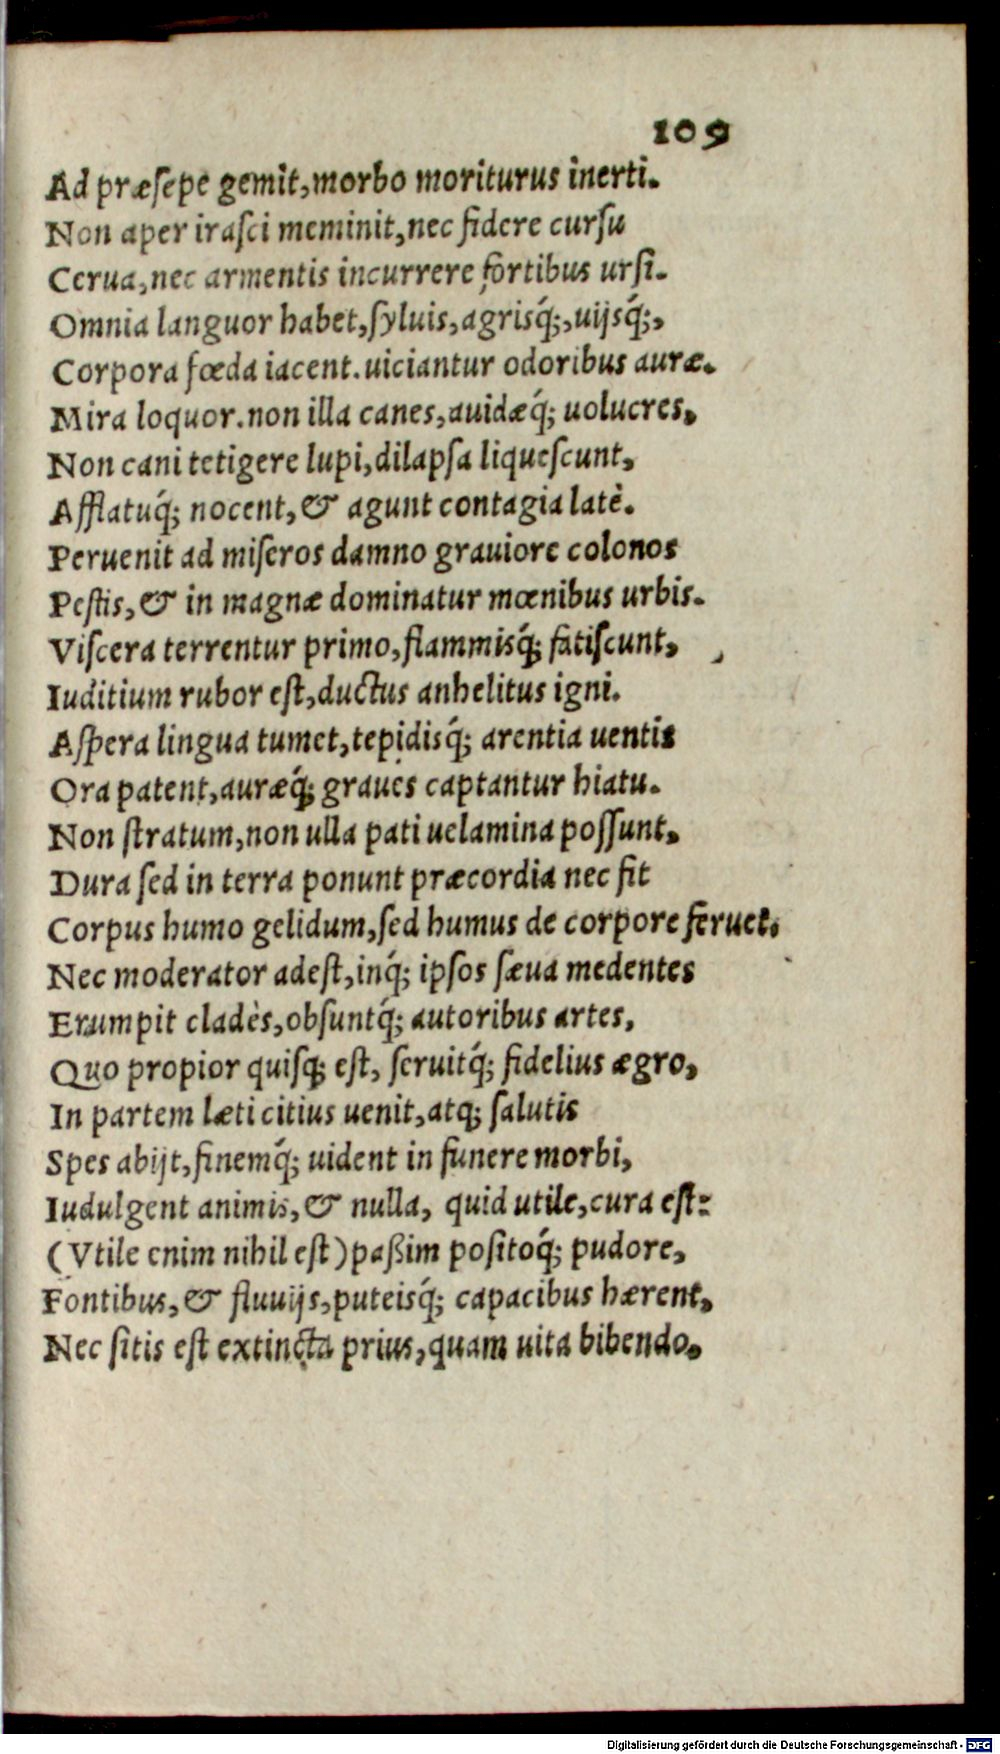 109
Ad præſepe gemit, morbo moriturus inerti.
Non aper iraſci meminit, nec fidere curſu
Cerua, nec armentis incurrere fortibus urſi.
Omnia languor habet, ſyluis, agrisq́;, uijsq́;,
Corpora fœda iacent. uiciantur odoribus auræ.
Mira loquor. non illa canes, auidæq́; uolucres,
Non cani tetigere lupi, dilapſa liqueſcunt,
Afflatuq́; nocent, & agunt contagia latè.
Peruenit ad miſeros damno grauiore colonos
Peſtis, & in magnæ dominatur mœnibus urbis.
Viſcera terrentur primo, flammisq́; fatiſcunt,
Iuditium rubor eſt, ductus anhelitus igni.
Aſpera lingua tumet, tepidisq́; arentia uentis
Ora patent, auræq́; graues captantur hiatu.
Non ſtratum, non ulla pati uelamina poſſunt,
Dura ſed in terra ponunt præcordia nec fit
Corpus humo gelidum, ſed humus de corpore feruet.
Nec moderator adeſt, inq́; ipſos ſæua medentes
Erumpit cladès, obſuntq́; autoribus artes,
Quo propior quiſq; eſt, ſeruitq́; fidelius ægro,
In partem læti citius uenit, atq; ſalutis
Spes abijt, finemq́; uident in funere morbi,
Iudulgent animis, & nulla, quid utile, cura eſt:
(Vtile enim nihil eſt) paßim poſitoq́; pudore,
Fontibus, & fluuijs, puteisq́; capacibus hærent,
Nec ſitis eſt extincta prius, quam uita bibendo.
Digitalisierung gefördert durch die Deutsche Forschungsgemeinschaft - DFG